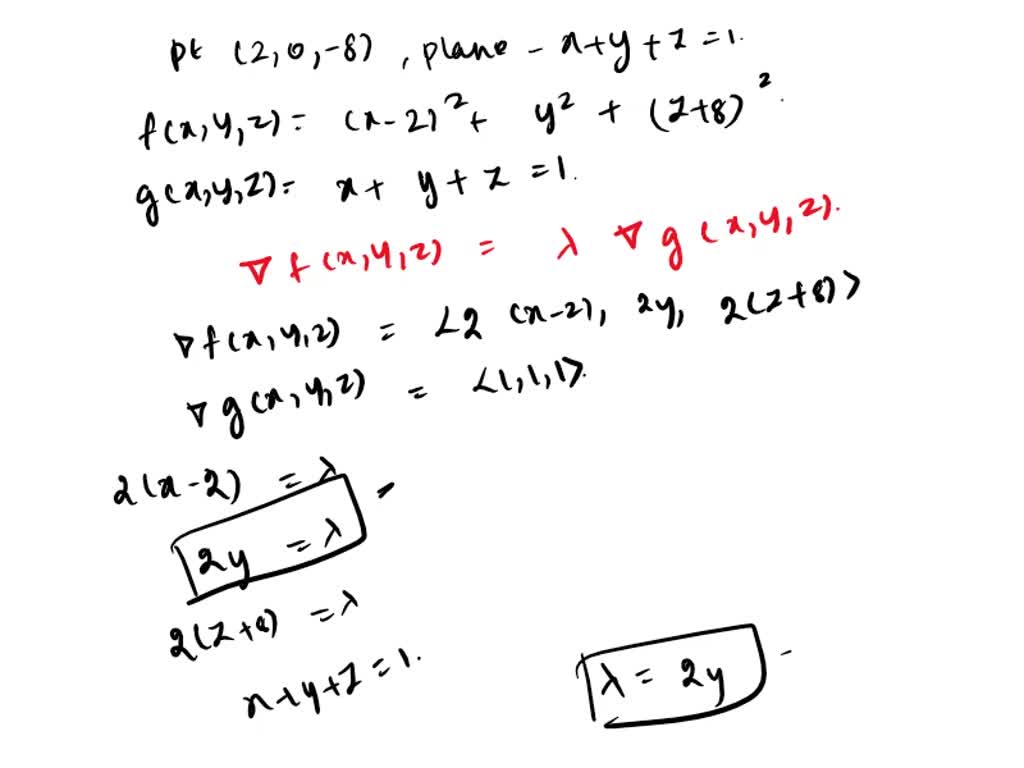 pt (2,0,-8), plane - x+y+z=1.
f(x,y,z)= (x-2)²+ y² + (z+8)².
g(x,y,z)= x+ y+z =1.
∇f(x,y,z) = λ ∇g(x,y,z).
∇f(x,y,z) = <2(x-2), 2y, 2(z+8)>
∇g(x,y,z) = <1,1,1>.
2(x-2) =λ
2y =λ
2(z+8) =λ
x+y+z=1.
λ= 2y